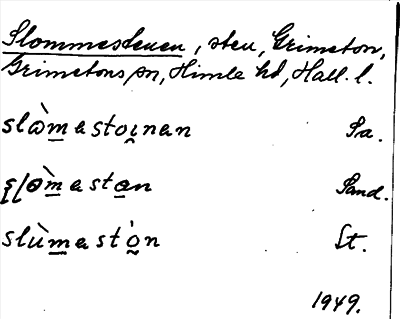 Slommestenen, sten, Grimeton,
Grimetons sn, Himle hd, Hall. l.
slɷ̀m̲astoı̨nan Sa.
ʂɭɵ̀m̲asta̲n Sand.
slùm̲astò̰n St.
1949.